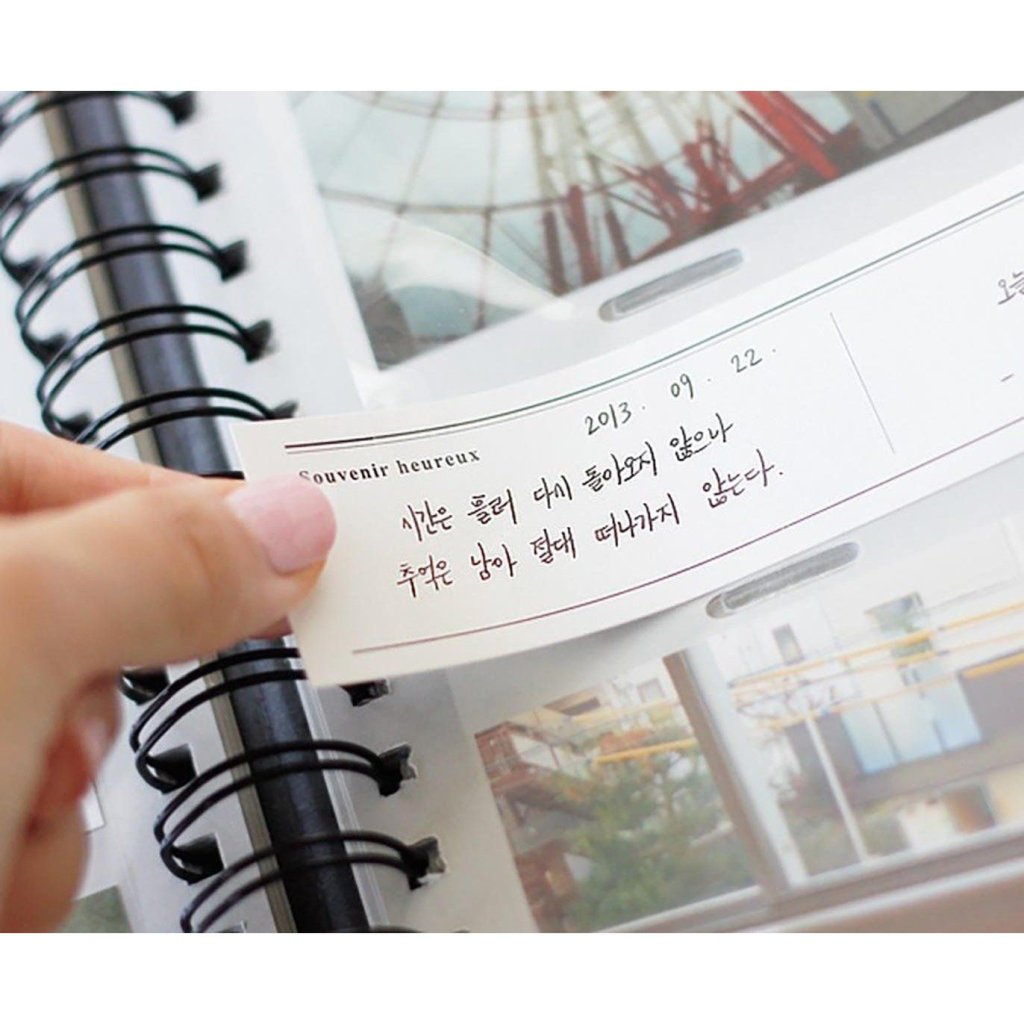 Souvenir heureux
2013. 09. 22.
시간은 흘러 다시 돌아오지 않으나
추억은 남아 절대 떠나가지 않는다.
오늘
-